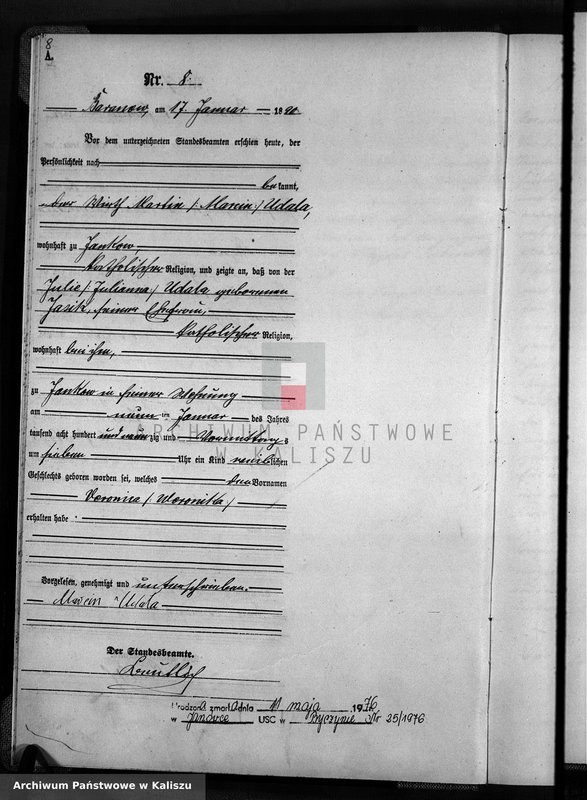 8
A.
Nr. 8.
Baranow, am 17 Januar 1890
Vor dem unterzeichneten Standesbeamten erschien heute, der
Persönlichkeit nach
bekannt,
der Wirth Martin /:Marcin:/ Udala,
wohnhaft zu Jankow
katholischer Religion, und zeigte an, daß von der
Julie /:Julianna:/ Udala geborenen
Jasik, seiner Ehefrau,
katholischer Religion,
wohnhaft bei ihm,
zu Jankow in seiner Wohnung
am neun ten Januar des Jahres
tausend acht hundert und neunzig und Vormittags
um sieben Uhr ein Kind weiblichen
Geschlechts geboren worden sei, welches den Vornamen
Veronica /:Weronika:/
erhalten habe
Vorgelesen, genehmigt und unterschrieben.
Marcin Udala
Der Standesbeamte.
Urodzona zmarła dnia 11 maja 1976
w Janówce USC w Byczynie Nr 25/1976
ARCHIWUM PAŃSTWOWE
W KALISZU
Archiwum Państwowe w Kaliszu